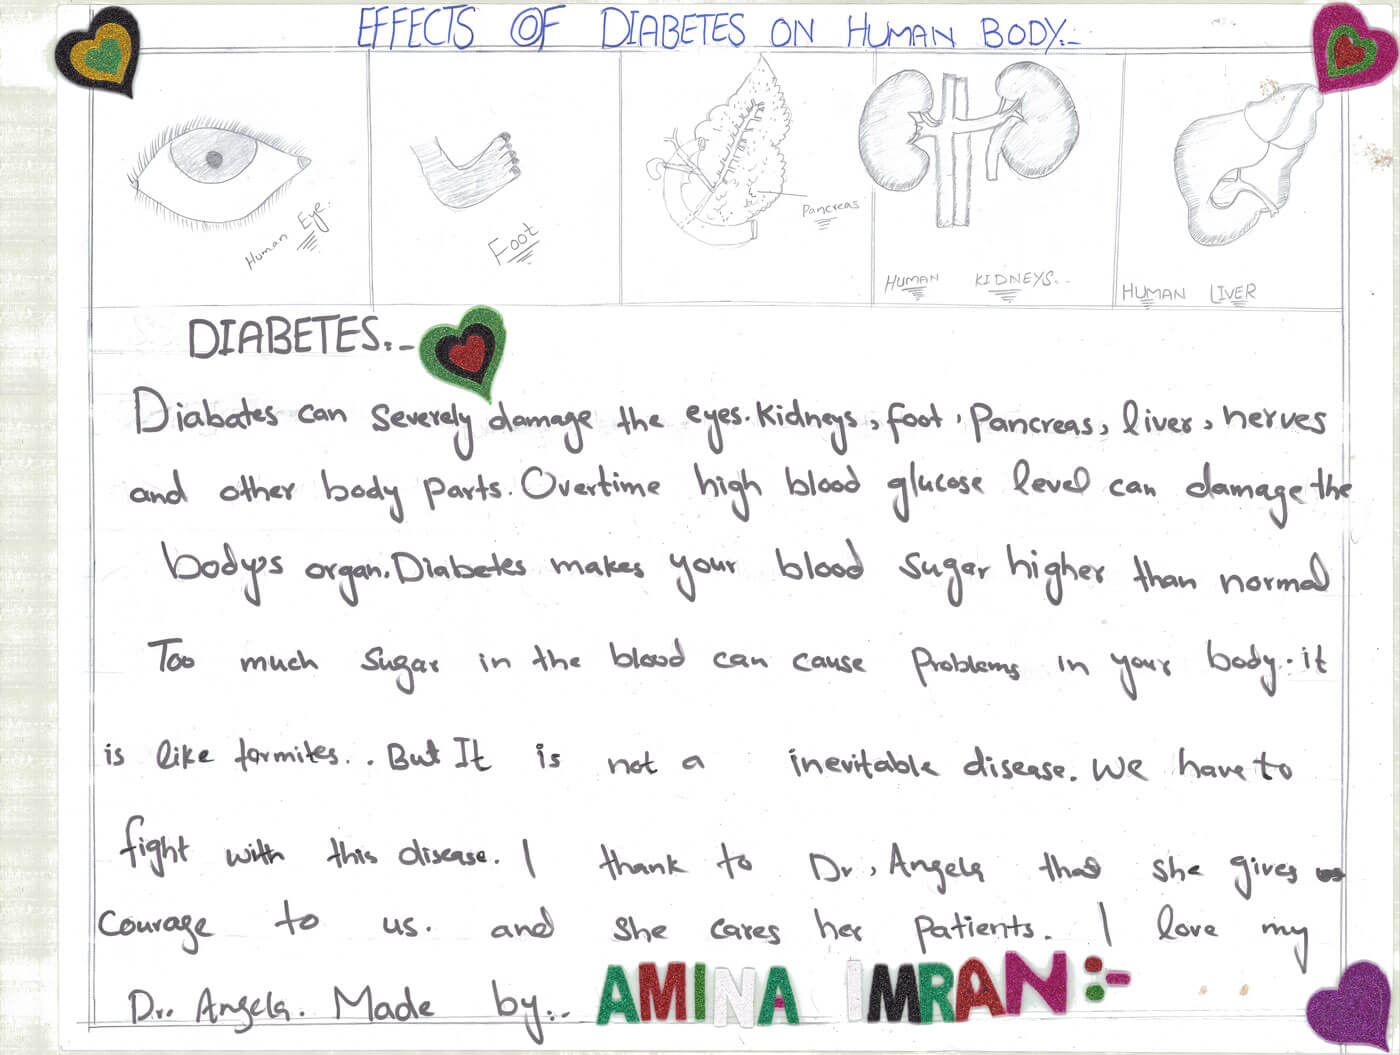 EFFECTS OF DIABETES ON HUMAN BODY:-
Human Eye.
Foot
Pancreas
HUMAN KIDNEYS..
HUMAN LIVER
DIABETES:-
Diabates can severely damage the eyes. Kidneys, foot, Pancreas, liver, nerves
and other body parts. Overtime high blood glucose level can damage the
body's organ. Diabetes makes your blood sugar higher than normal
Too much sugar in the blood can cause problems in your body. it
is like tarmites.. But It is not a inevitable disease. We have to
fight with this disease. I thank to Dr, Angela that she gives
courage to us. and she cares her patients. I love my
Dr. Angela. Made by:-. AMINA IMRAN:-